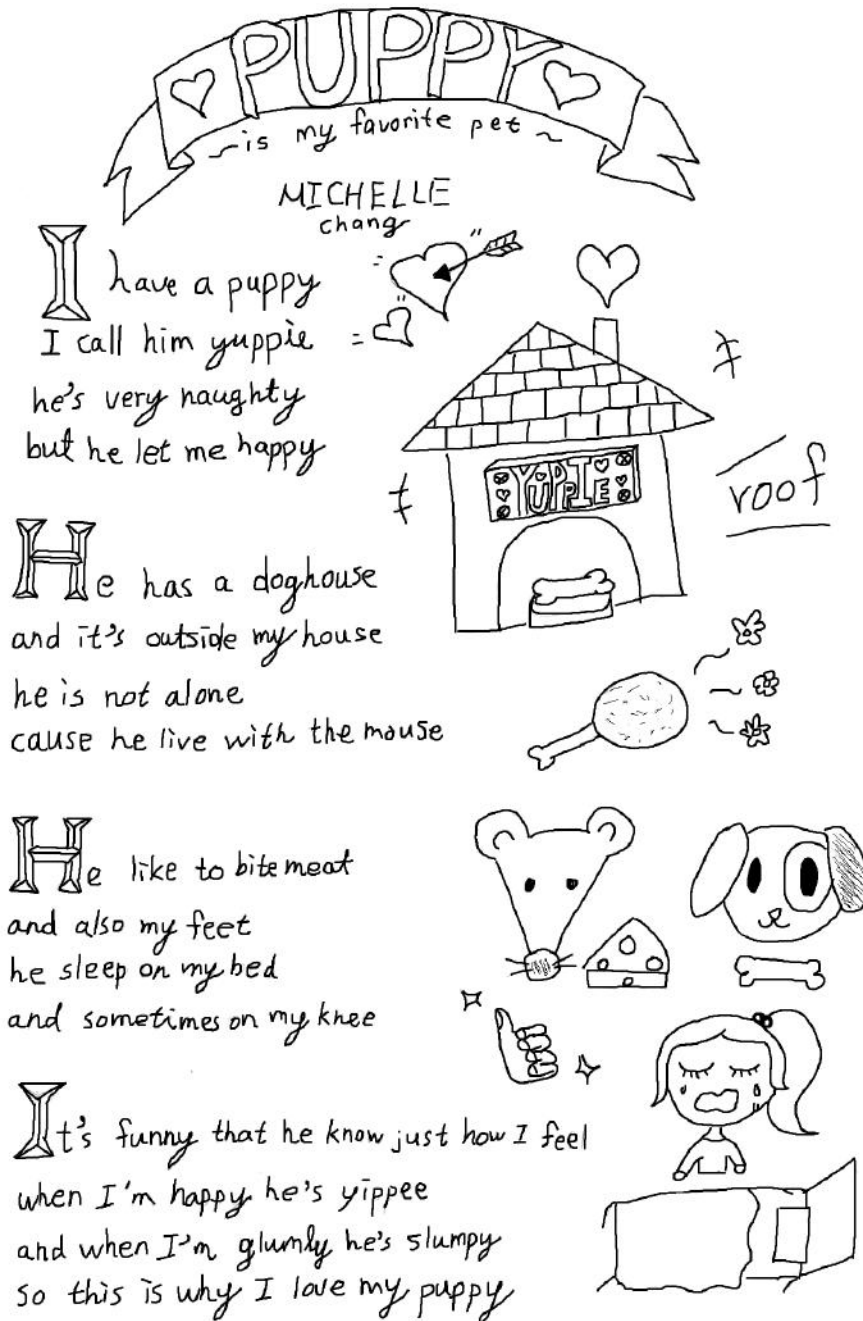 PUPPY
~is my favorite pet~
MICHELLE
chang
I have a puppy
I call him yuppie
he's very naughty
but he let me happy
YUPPIE
roof
He has a doghouse
and it's outside my house
he is not alone
cause he live with the mouse
He like to bite meat
and also my feet
he sleep on my bed
and sometimes on my knee
It's funny that he know just how I feel
when I'm happy he's yippee
and when I'm glumly he's slumpy
so this is why I love my puppy